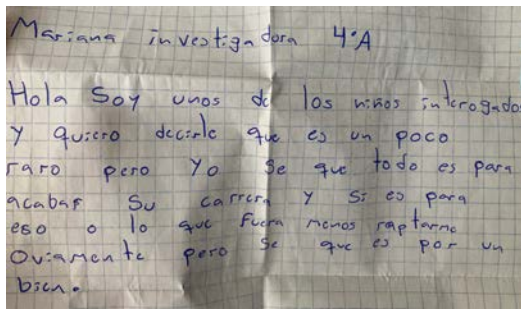 Mariana investigadora 4°A
Hola Soy unos de los niños interogados
y quiero decirle que es un poco
raro pero Yo Se que todo es para
acabar Su carrera Y Si es para
eso o lo que fuera menos raptarme
Oviamente pero Se que es por un
bien.